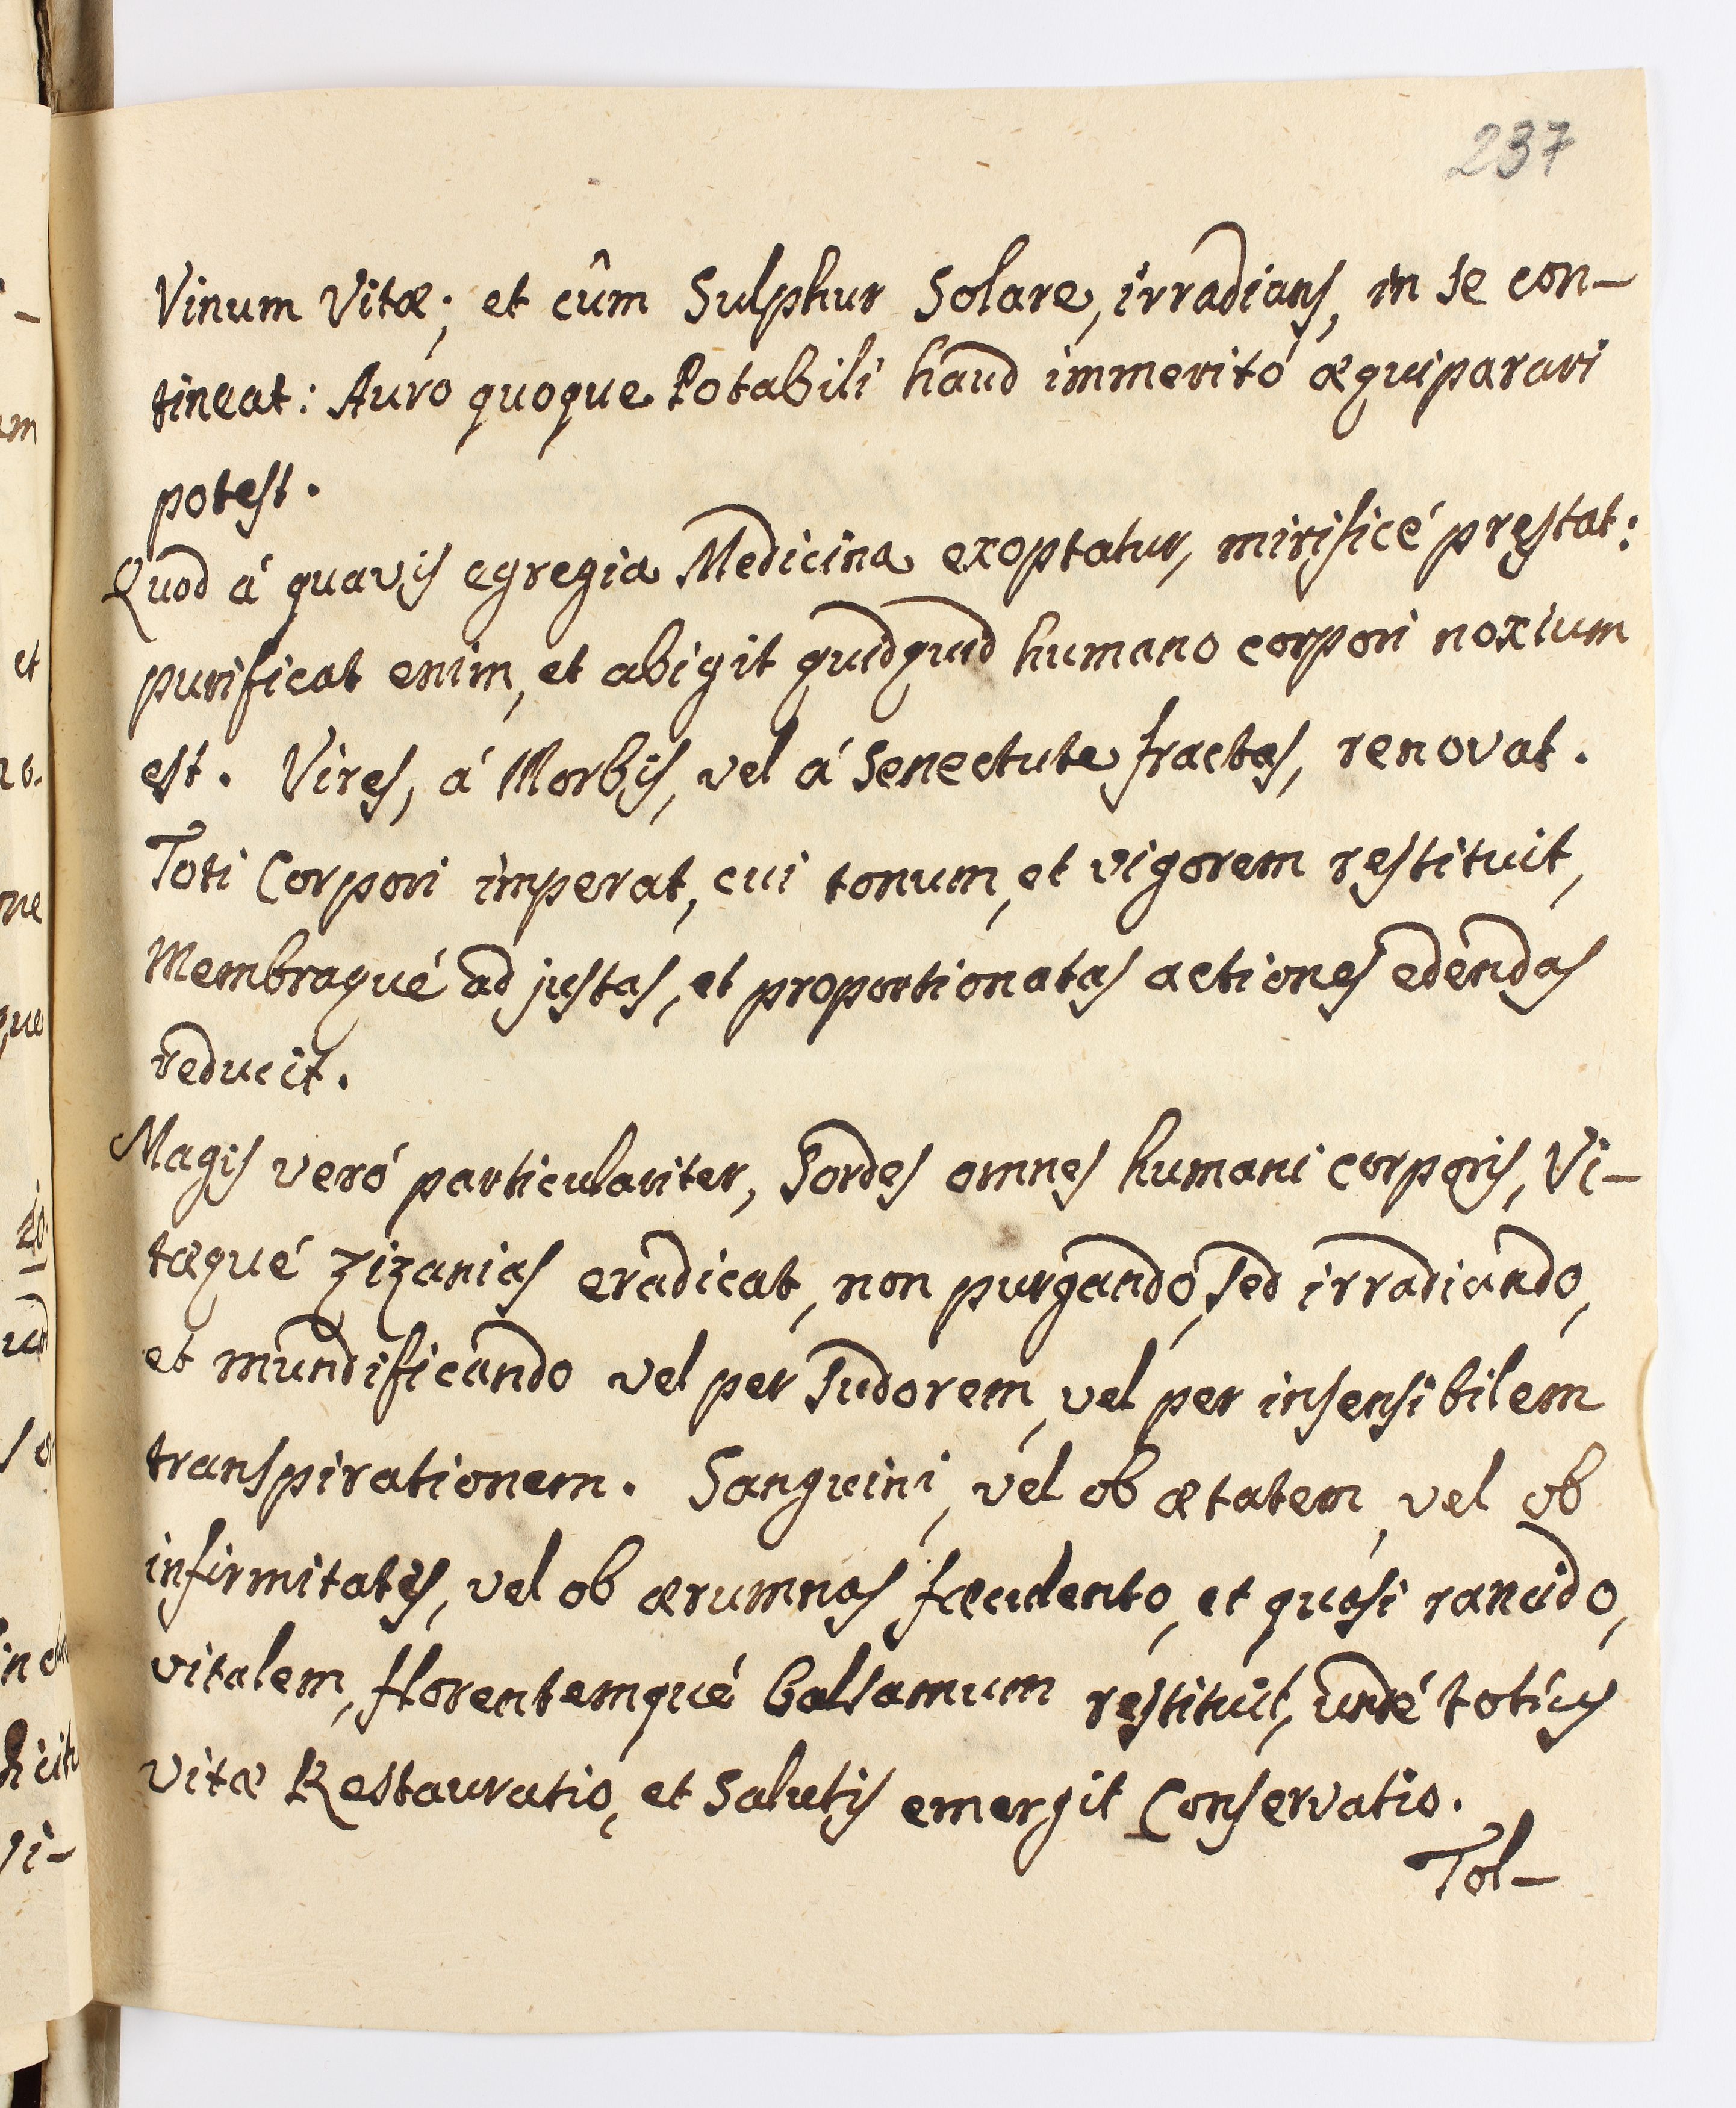 237
Vinum Vitæ; et cûm Sulphur Solare, irradians, in se con-
tineat: Auro quoque Potabili haud immeritó æquiparari
potest.
Quod á quavis egregia Medicina exoptatur, mirificé prestat:
purificat enim, et abigit quidquid humano corpori noxium
est. Vires, á Morbis, vel á Senectute fractas, renovat.
Toti Corpori imperat, cui tonum, et vigorem restituit,
Membraqué ad justas, et proportionatas actiones edendas
reducit.
Magis veró particulariter, Sordes omnes humani corporis, Vi-
tæqué zizanias eradicat, non purgando, sed irradiando,
et mundificando vel per Sudorem, vel per insensibilem
transpirationem. Sanguini, vel ob ætatem, vel ob
infirmitates, vel ob ærumnas fæculento, et quasi rancido,
vitalem, florentemqué Balsamum restituit, undé totius
vitæ Restauratio, et Salutis emergit Conservatio.
Tol-